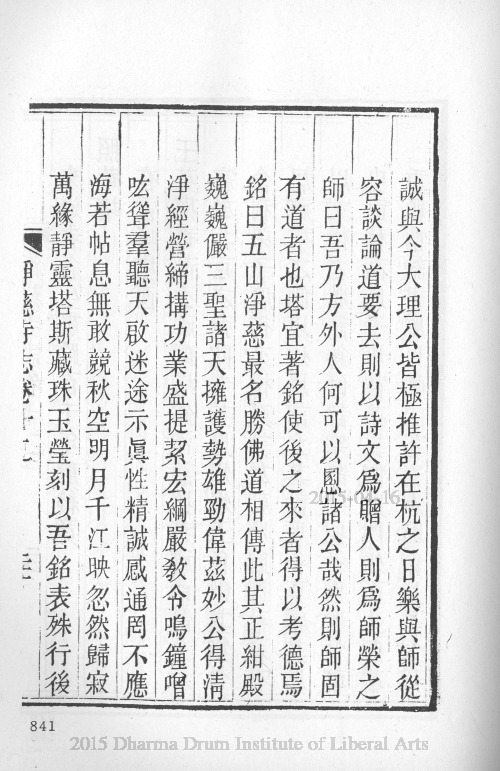 誠與今大理公皆極推許在杭之日樂與師從
容談論道要去則以詩文爲贈人則爲師榮之
師曰吾乃方外人何可以慁諸公哉然則師固
有道者也塔宜著銘使後之來者得以考德焉
銘曰五山淨慈最名勝佛道相傳此其正紺殿
巍巍儼三聖諸天擁護勢雄勁偉茲妙公得清
淨經營締搆功業盛提挈宏綱嚴敎令鳴鐘噌
吰聳羣聽天啟迷途示眞性精誠感通罔不應
海若帖息無敢競秋空明月千江映忽然歸寂
萬緣靜靈塔斯藏珠玉瑩刻以吾銘表殊行後
淨慈寺志卷十二
841
2015 Dharma Drum Institute of Liberal Arts